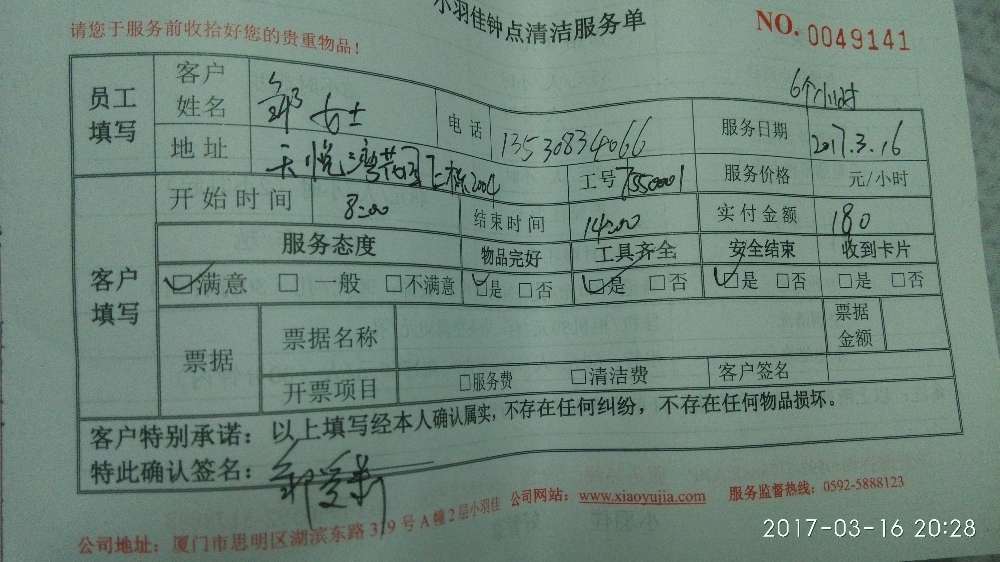 小羽佳钟点清洁服务单
请您于服务前收拾好您的贵重物品！
NO. 0049141
6个小时
员工填写 客户姓名 邹女士 电话 13530834066 服务日期 2017.3.16
地址 天悦湾花园 2004 工号 7550001 服务价格 元/小时
客户填写 开始时间 8:00 结束时间 14:00 实付金额 180
服务态度 物品完好 工具齐全 安全结束 收到卡片
☑满意 □一般 □不满意 ☑是 □否 ☑是 □否 ☑是 □否 □是 □否
票据 票据名称 票据金额
开票项目 □服务费 □清洁费 客户签名
客户特别承诺：以上填写经本人确认属实，不存在任何纠纷，不存在任何物品损坏。
特此确认签名：
公司地址：厦门市思明区湖滨东路319号A幢2层小羽佳 公司网站：www.xiaoyujia.com 服务监督热线：0592-5888123
2017-03-16 20:28